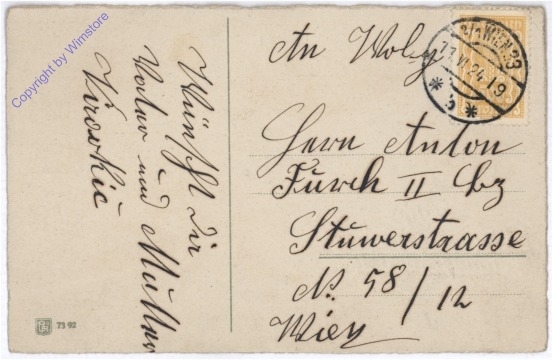 Wünscht dir
Vater und Mutter
An Wolg
Herrn Anton
Furch II Bz
Stuwerstrasse
No 58/12
Wien
2/1 WIEN 23
VI. 24 19
* c *
73 92
Copyright by Wimstore